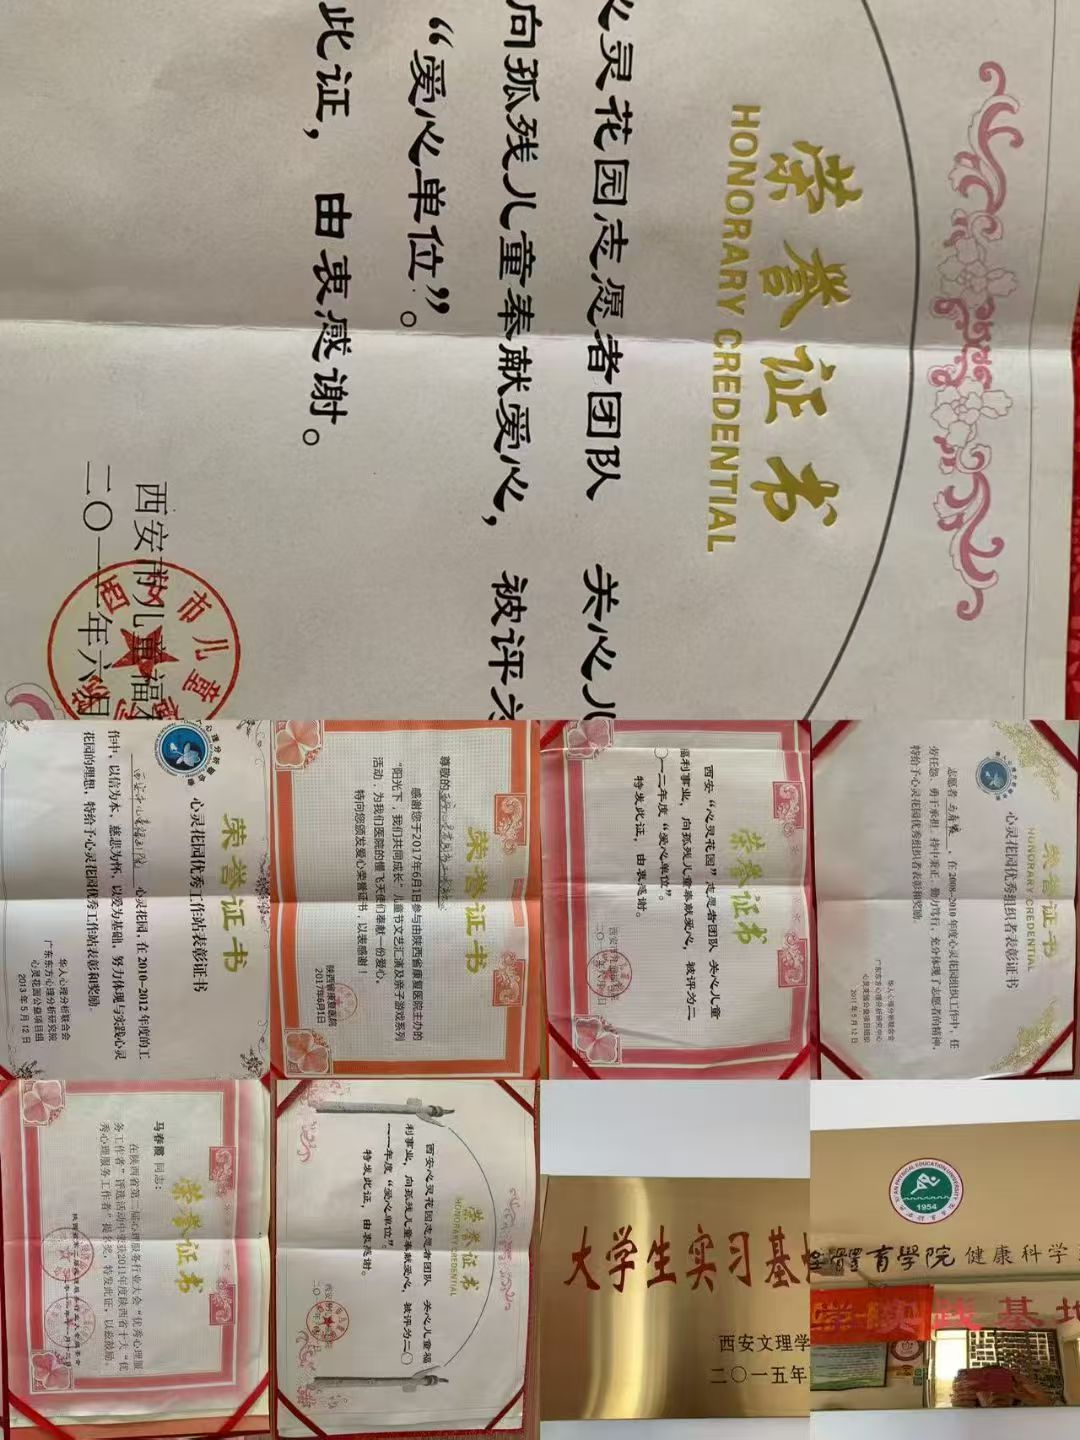 荣誉证书
HONORARY CREDENTIAL
心灵花园志愿者团队 关心儿
向孤残儿童奉献爱心，被评为
“爱心单位”。
此证，由衷感谢。
西安市儿童福利
二〇一二年六月
荣誉证书
心灵花园优秀工作站表彰证书
心灵花园，在 2010-2012 年度的工
作中，以信为本，慈悲为怀，以爱为基础，努力体现与实践心灵
花园的理想，特给予心灵花园优秀工作站表彰和奖励。
华人心理分析联合会
广东东方心理分析研究院
心灵花园公益项目组
2013 年 5 月 12 日
荣誉证书
尊敬的
感谢您于2017年6月1日参与由陕西省康复医院主办的
“阳光下，我们共同成长”儿童节文艺汇演及亲子游戏系列
活动，为我们医院的慢飞天使们奉献一份爱心。
特向您颁发爱心荣誉证书，以表感谢！
陕西省康复医院
2017年6月1日
荣誉证书
西安“心灵花园”志愿者团队 关心儿童
福利事业，向孤残儿童奉献爱心，被评为二
〇一二年度“爱心单位”。
特发此证，由衷感谢。
荣誉证书
HONORARY CREDENTIAL
心灵花园优秀组织者表彰证书
志愿者 马春暖 ，在 2008-2010 年度心灵花园组织工作中，任
劳任怨、勇于承担、持中秉正、勤力笃行，充分体现了志愿者的精神，
特给予心灵花园优秀组织者表彰和奖励。
华人心理分析联合会
广东东方心理分析研究中心
心灵花园公益项目组织
2011 年 5 月 12 日
荣誉证书
马春霞 同志：
在陕西省第二届心理服务行业大会“优秀心理服
务工作者”评选活动中荣获2011年度陕西省十大“优
秀心理服务工作者”提名奖。特发此证，以兹鼓励。
荣誉证书
HONORARY CREDENTIAL
西安心灵花园志愿者团队 关心儿童福
利事业，向孤残儿童奉献爱心，被评为二〇
一一年度“爱心单位”。
特发此证，由衷感谢。
大学生实习基
西安文理学
二〇一五年
XI'AN PHYSICAL EDUCATION UNIVERSITY
1954
體育學院 健康科学
实践基地